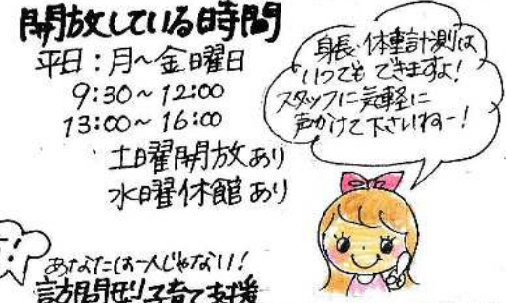 開放している時間
平日：月～金曜日
9:30～12:00
13:00～16:00
土曜開放あり
水曜休館あり
身長・体重計測は
いつでもできますよ！
スタッフに気軽に
声かけて下さいねー！
！
あなたは一人じゃない！
訪問型子育て支援